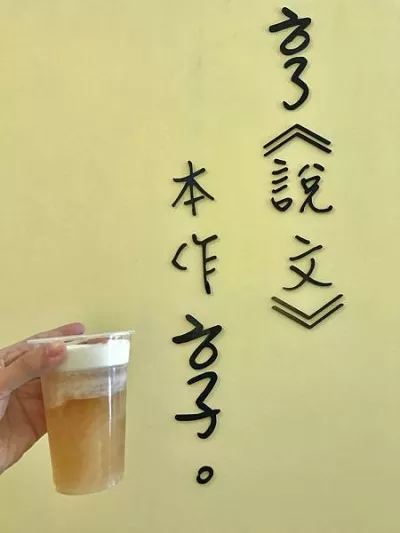 亨《說文》
本作享。